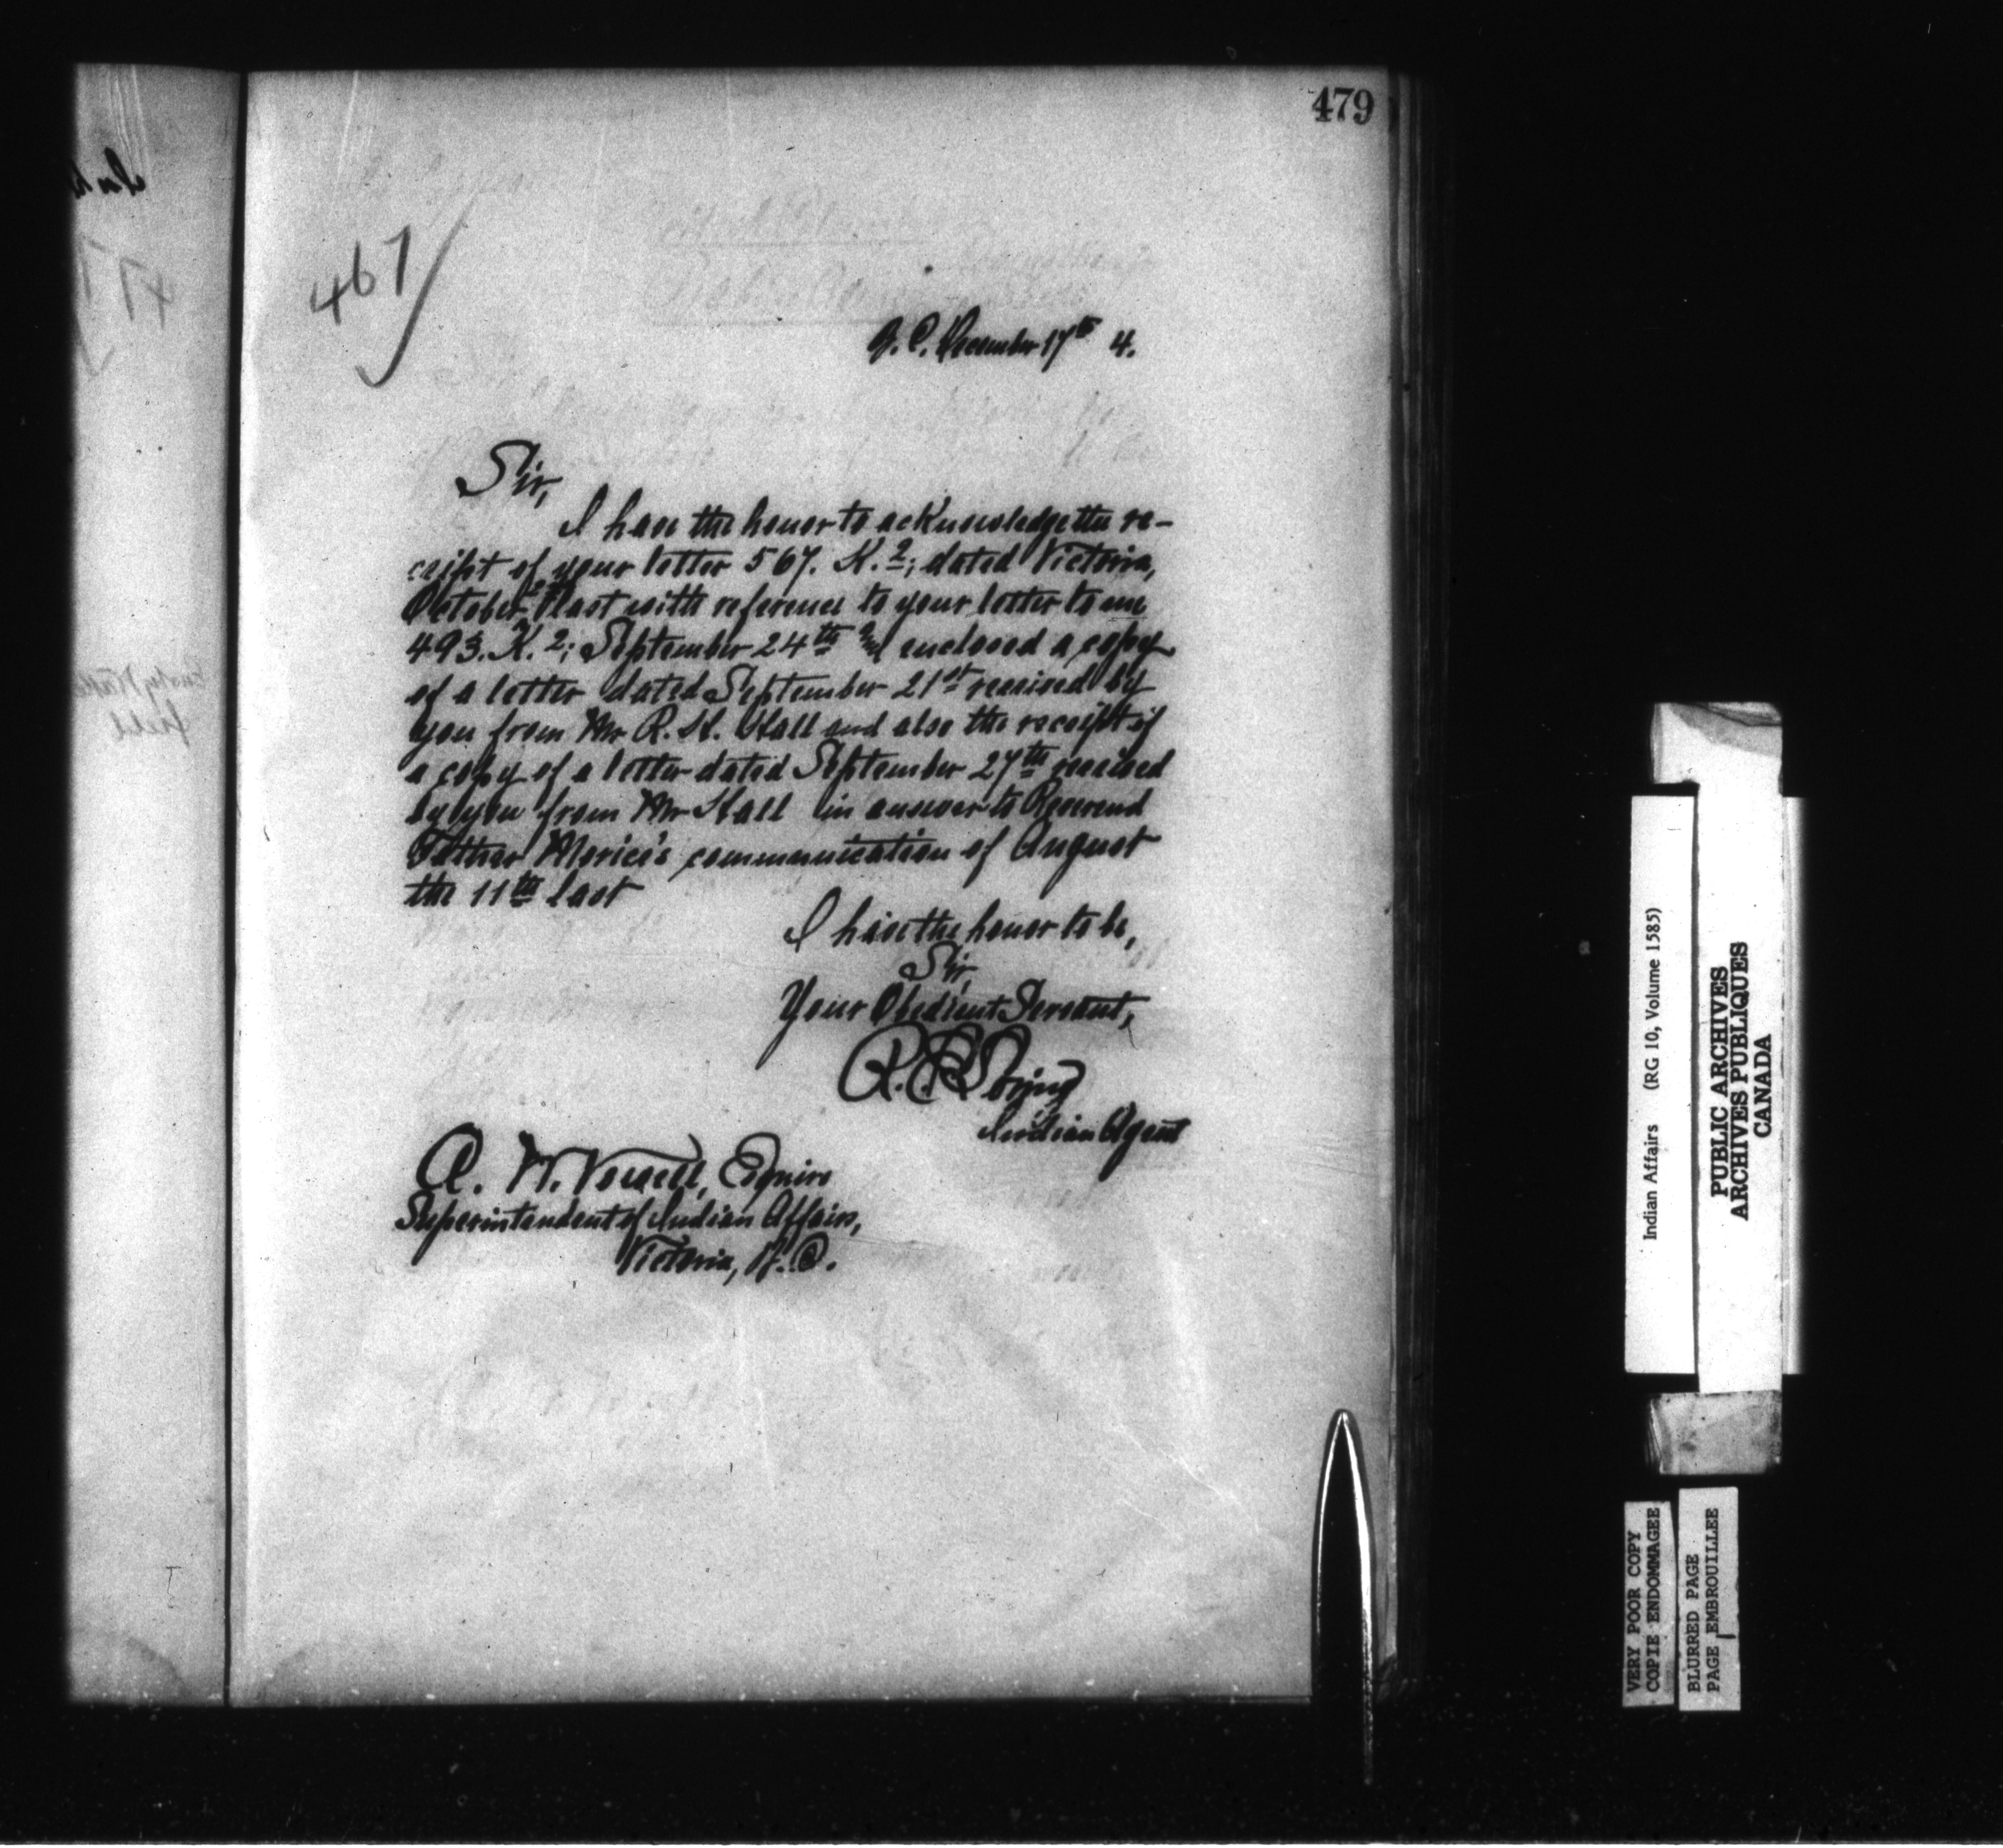 479
467
B. C. December 17th 4.
Sir,
I have the honor to acknowledge the re-
ceipt of your letter 567. K. 2; dated Victoria,
October last with reference to your letter to me
493. K. 2; September 24th enclosed a copy
of a letter dated September 21st received by
you from Mr R. H. Hall and also the receipt of
a copy of a letter dated September 27th received
by you from Mr Hall in answer to Reverend
Father Morice's communication of August
the 11th last
I have the honor to be,
Sir,
Your Obedient Servant,
R. E. Loring
Indian Agent
A. W. Vowell, Esquire
Superintendent of Indian Affairs,
Victoria, B. C.
Indian Affairs (RG 10, Volume 1585)
PUBLIC ARCHIVES
ARCHIVES PUBLIQUES
CANADA
VERY POOR COPY
COPIE ENDOMMAGEE
BLURRED PAGE
PAGE EMBROUILLEE